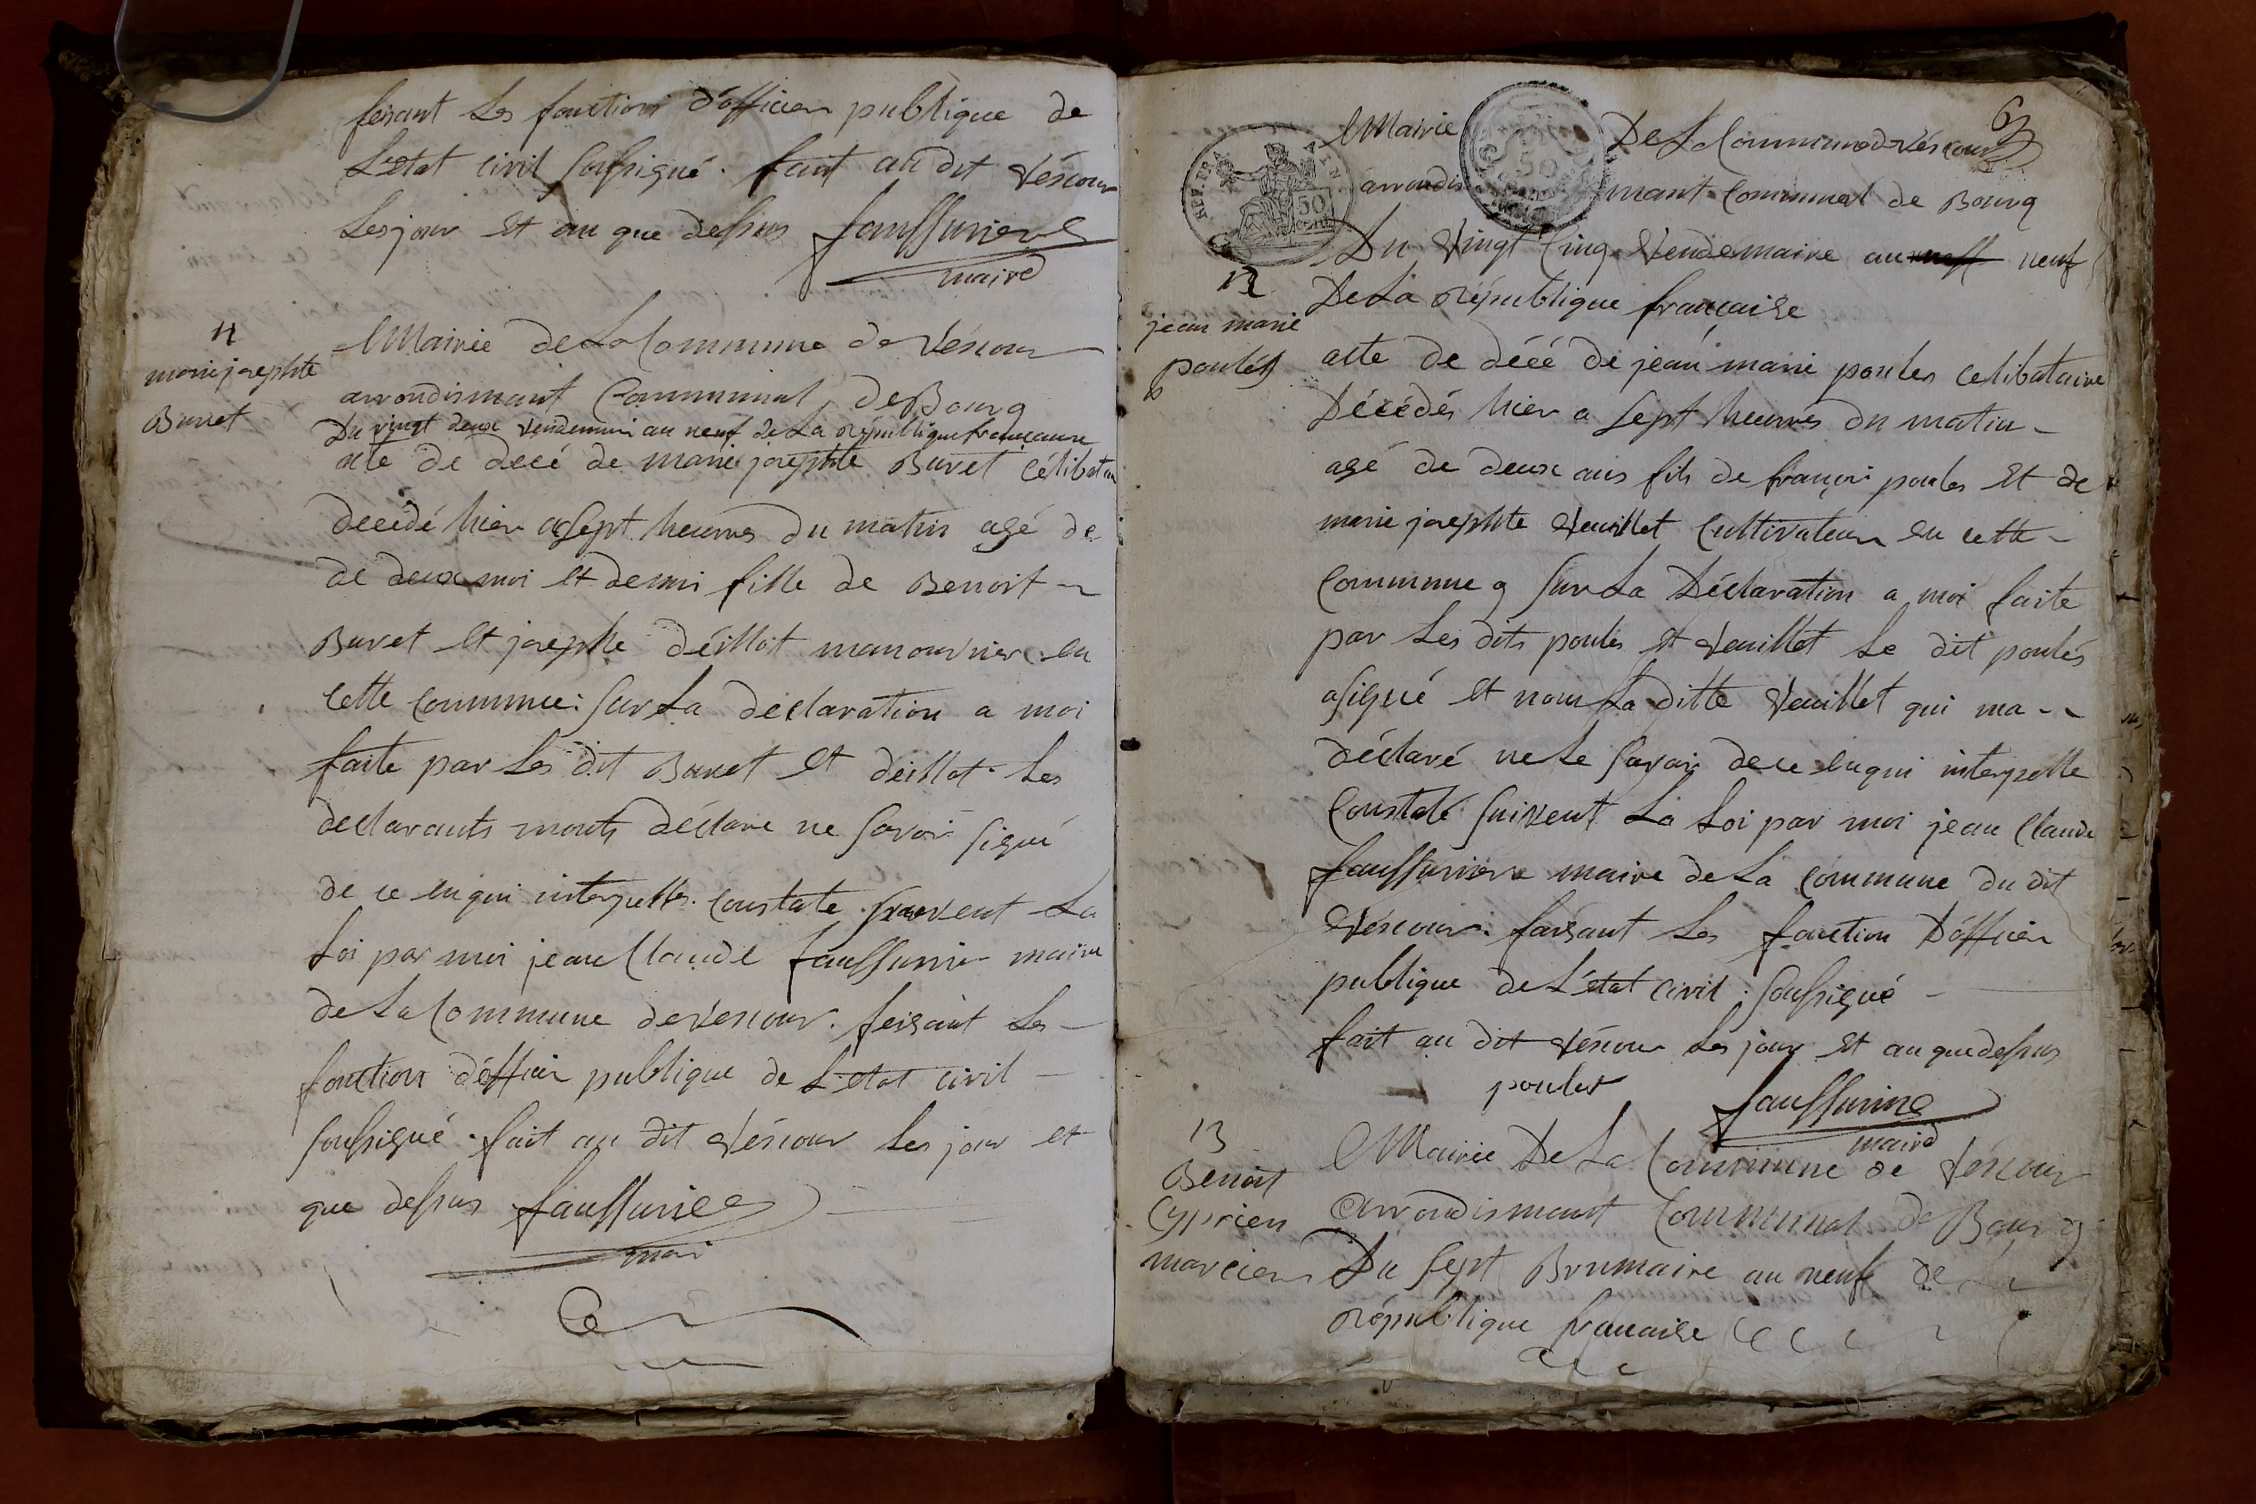 fesant Les fonctions d'officier publique de
L'etat civil soussigné. fait au dit véscour
Les jour et an que dessus faussurier
maire
11
marie josephte
Buvet
Mairie de La Commune de véscour
arrondismant Communal, de Bourg
Du vingt deux vendemiaire an neuf de La république francaise
acte de décé de marie josephte Buvet célibataire
decédé hier a sept heures du matin agé de
de deux moi et demi fille de Benoit
Buvet et josephte déillot manouvrier en
cette commune: sur La déclaration a moi
faite par Les dit Buvet et déillot. Les
declarants monts déclare ne savoir signé
de ce enqui interpellés. Constate suivent La
Loi par moi jean Claude faussurier maire
de La Commune de vescour. feisant Les
fonction d'officier publique de L'etat civil
soussigné. fait au dit véscour Les jour et
que dessus faussurier
mair
6
REP. FRA
50
CENT
50
Mairie De La Commune de véscour
arrondismant Communal de Bourg
Du vingt Cinq vendemaire an neuf neuf
De La république francaise
12
jean marie
poulés
acte de décé de jean marie poules celibataire
Décédés hier a sept heures du matin
agé de deux ans fils de françoi poules et de
marie josephte veuillet Cultivateur en cette
Commune sur La Déclaration a moi faite
par Les dits poules et veuillet Le dit poulés
asigné et nom La ditte veuillet qui ma
déclaré ne Le savoir de ce enqui interpelle
Constaté suivent La Loi par moi jean Claude
faussurier maire de La Commune du dit
véscour: faisant Les fonction D'officier
publique de L'état Civil. soussigné
fait au dit véscour Les jour et an que dessus
poules faussurier
maire
13
Benoit
Cyprien
marcien
Mairie De La Commune de véscour
arrondismant Communal de Bourg
Du sept Brumaire an neuf de La
république francaise